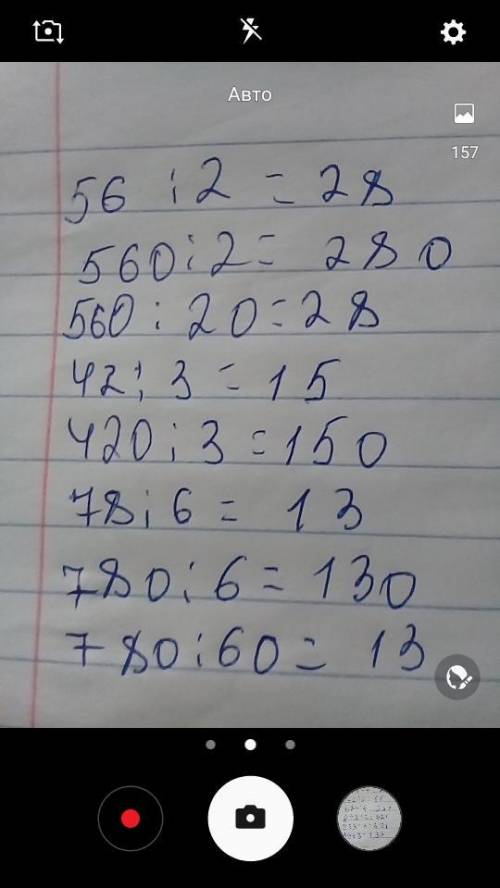 Авто
157
56 : 2 = 28
560 : 2 = 280
560 : 20 = 28
42 : 3 = 15
420 : 3 = 150
78 : 6 = 13
780 : 6 = 130
780 : 60 = 13